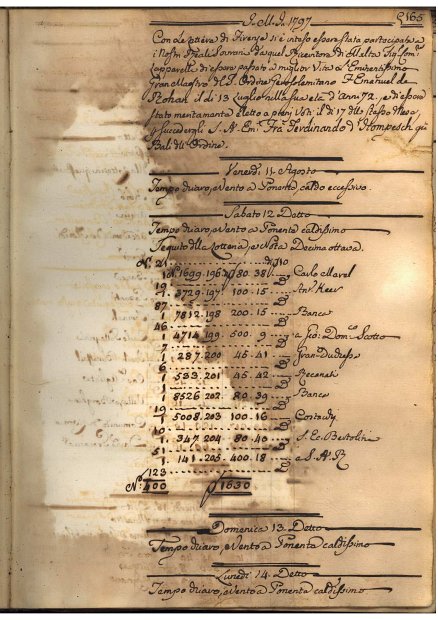 J. M. J. 1797
165
Con Lettera di Firenze si è inteso essere stata partecipata a
i Nostri Reali Sovrani da quel Ricevitore di Malta Sig. Com.
Zapparelli di essere passato a miglior Vita l'Eminentissimo
Gran Maestro dell' Ordine Gerosolimitano F. Emanuel de
Rohan il dì 13 Luglio nella sua età d'Anni 72, e di essere
stato meritamente eletto a pieni Voti il dì 17 detto stesso Mese
Succedergli S. A. Em. Frà Ferdinando d'Hompesch già
Balì dell' Ordine.
Venerdì 11 Agosto
Tempo chiaro, e Vento a Ponente, caldo eccessivo.
Sabato 12 Detto
Tempo chiaro, e Vento a Ponente caldissimo
Seguito della Lotteria, e Nota Decima ottava.
N. 21
1 N. 1699. 196 80. 38 Carlo Morel
19
1 3729. 197 100. 15 Keer
87
1 7812. 198 200. 15 Banca
46
1 4714. 199 500. 9 a Gio: Dom.co Scotto
1
1 287. 200 45. 41 Gran Duchessa
6
1 533. 201 45. 42 Recanati
1 8526. 202 80. 39 Banca
19
1 5008. 203 100. 16
1
1 347. 204 80. 40 S. Ec. Bertolini
5
1 141. 205 400. 18 a S. A. R.
123
N. 400 1630
Domenica 13 Detto
Tempo chiaro, e Vento a Ponente caldissimo
Lunedì 14 Detto
Tempo chiaro, e Vento a Ponente caldissimo